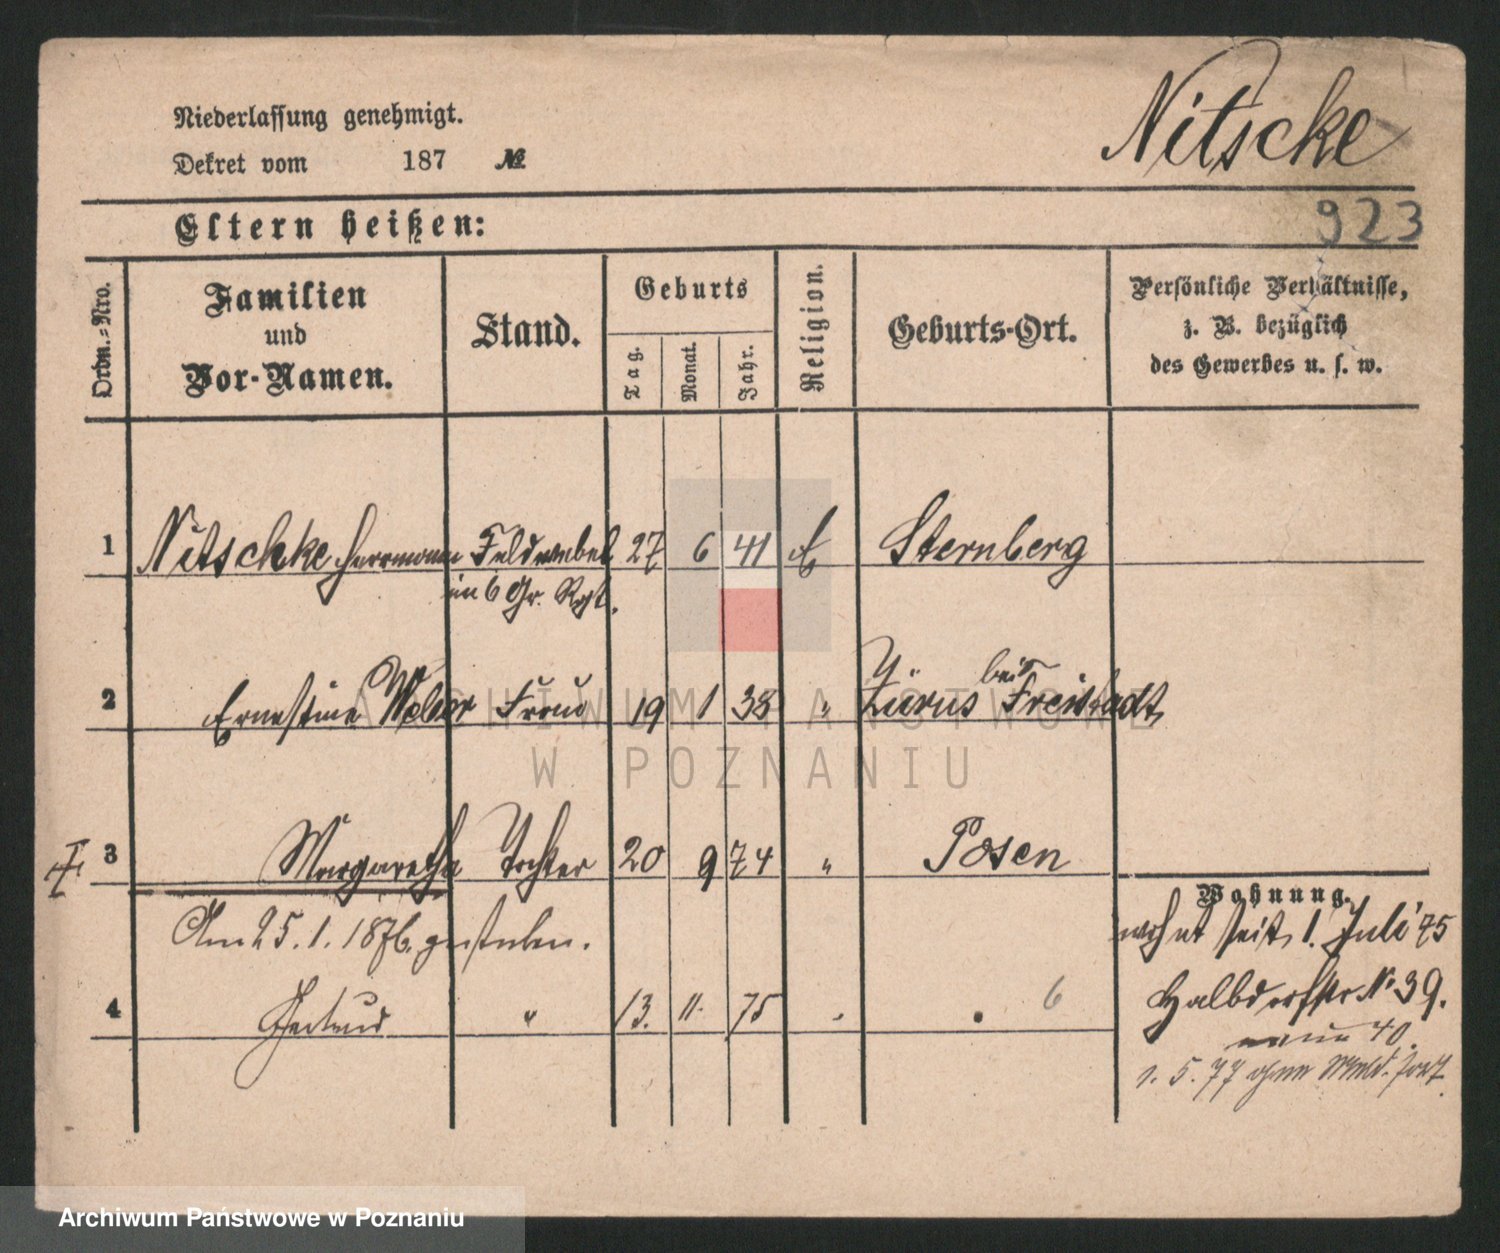 Nitscke
Niederlassung genehmigt.
Dekret vom 187 №
923
Eltern heißen:
Ordn.-Nro.
Familien
und
Vor-Namen.
Stand.
Geburts
Tag.
Monat.
Jahr.
Religion.
Geburts-Ort.
Persönliche Verhältnisse,
z. B. bezüglich
des Gewerbes u. s. w.
1 Nitschke Herrmann Feldwebel 27 6 41 Sternberg
im 6 Gr. Rgt.
bei
2 Ernestine Frau 19 1 38 " Zürus Freistadt
3 Margaretha Tochter 20 9 74 " Posen
Wohnung.
Am 25. 1. 1876. gestorben.
wohnt seit 1. Juli 75
4 Gertrud " 13. 11. 75 6
Halbdorfstr № 39.
40.
1. 5. 77 ohne Meld. fort
ARCHIWUM PAŃSTWOWE
W POZNANIU
Archiwum Państwowe w Poznaniu